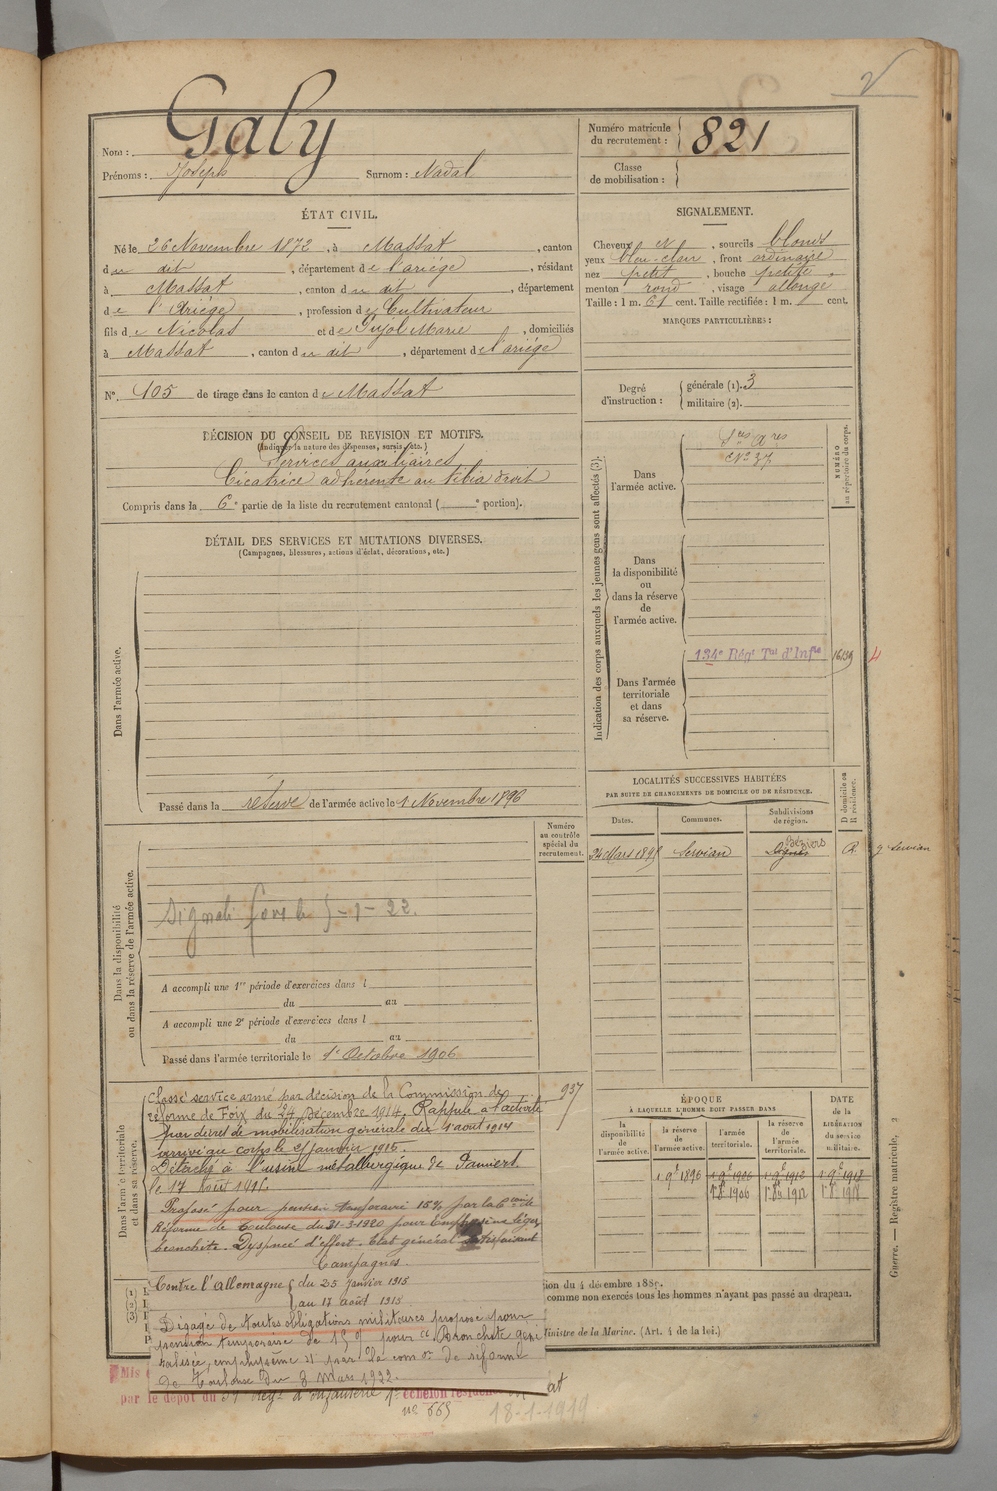 Nom : Galy
Prénoms : Joseph Surnom : Nadal
Numéro matricule du recrutement : 821
Classe de mobilisation :
ÉTAT CIVIL.
Né le 26 Novembre 1872, à Massat, canton
du dit, département de l'ariége, résidant
à Massat, canton du dit, département
de l'Ariége, profession de Cultivateur
fils de Nicolas et de Pujol Marie, domiciliés
à Massat, canton du dit, département de l'ariége
N° 105 de tirage dans le canton de Massat
SIGNALEMENT.
Cheveux N, sourcils blonds
yeux bleu-clair, front ordinaire
nez petit, bouche petite,
menton rond, visage allongé
Taille : 1 m. 61 cent. Taille rectifiée : 1 m. cent.
MARQUES PARTICULIÈRES :
Degré d'instruction : générale (1). 3
militaire (2).
DÉCISION DU CONSEIL DE REVISION ET MOTIFS.
(Indiquer la nature des dispenses, sursis, etc.)
Services auxiliaires
Cicatrice adhérente au tibia droit
Compris dans la 6e partie de la liste du recrutement cantonal ( e portion).
DÉTAIL DES SERVICES ET MUTATIONS DIVERSES.
(Campagnes, blessures, actions d'éclat, décorations, etc.)
Dans l'armée active.
Passé dans la réserve de l'armée active le 1 Novembre 1896
Indication des corps auxquels les jeunes gens sont affectés (3).
NUMÉRO au répertoire du corps.
Dans l'armée active.
Sces Ares
N° 37
Dans la disponibilité ou dans la réserve de l'armée active.
Dans l'armée territoriale et dans sa réserve.
134e Régt Tal d'Infie
4
LOCALITÉS SUCCESSIVES HABITÉES
PAR SUITE DE CHANGEMENTS DE DOMICILE OU DE RÉSIDENCE.
Dates. Communes. Subdivisions de région. D domicile ou R résidence.
Servian Béziers R. Servian
Numéro au contrôle spécial du recrutement.
Dans la disponibilité ou dans la réserve de l'armée active.
A accompli une 1re période d'exercices dans l
du au
A accompli une 2e période d'exercices dans l
du au
Passé dans l'armée territoriale le 1er Octobre 1906
Dans l'armée territoriale et dans sa réserve.
937
Classé service armé par décision de la Commission de
réforme de Foix du 24 Décembre 1914, Rappelé à l'activité
par décret de mobilisation générale du 1 août 1914
arrivé au corps le 25 janvier 1915.
Détaché à l'usine métallurgique de Pamiers.
le 17 Août 1915
Proposé pour pension temporaire 15% par la Comon de
Réforme de Toulouse du 31-3-1920 pour Emphysème léger,
bronchite. Dyspnée d'effort. Etat général satisfaisant
Campagnes.
Contre l'Allemagne du 25 janvier 1915
au 17 août 1915
Dégagé de toutes obligations militaires proposé pour
pension temporaire de 15% pour Bronchite géné
ralisée, emphysème par la comon de réforme
de Toulouse du 8 mars 1922.
ÉPOQUE
À LAQUELLE L'HOMME DOIT PASSER DANS
la disponibilité de l'armée active. la réserve de l'armée active. l'armée territoriale. la réserve de l'armée territoriale.
DATE de la LIBÉRATION du service militaire.
1 9e 1896 1 9e 1906 1 9e 1912 1 9e 1918
1 8e 1906 1 8e 1912 1 8e 1918
comme non exercés tous les hommes n'ayant pas passé au drapeau.
Ministre de la Marine. (Art. 4 de la loi.)
Mis
par le dépôt du
échelon
18-1-1919
Guerre. — Registre matricule,